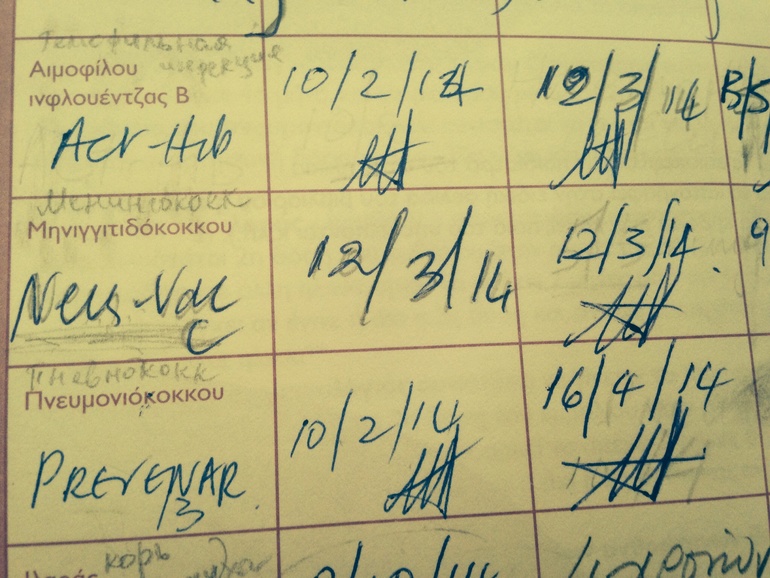 Гемофильная
инфекция
Αιμοφίλου
ινφλουέντζας Β
Act-Hib
10/2/14
12/3/14
Менингококк
Μηνιγγιτιδόκοκκου
Neis-Vac
C
12/3/14
12/3/14.
9
Пневмококк
Πνευμονιόκοκκου
PREVENAR
13
10/2/14
16/4/14
корь